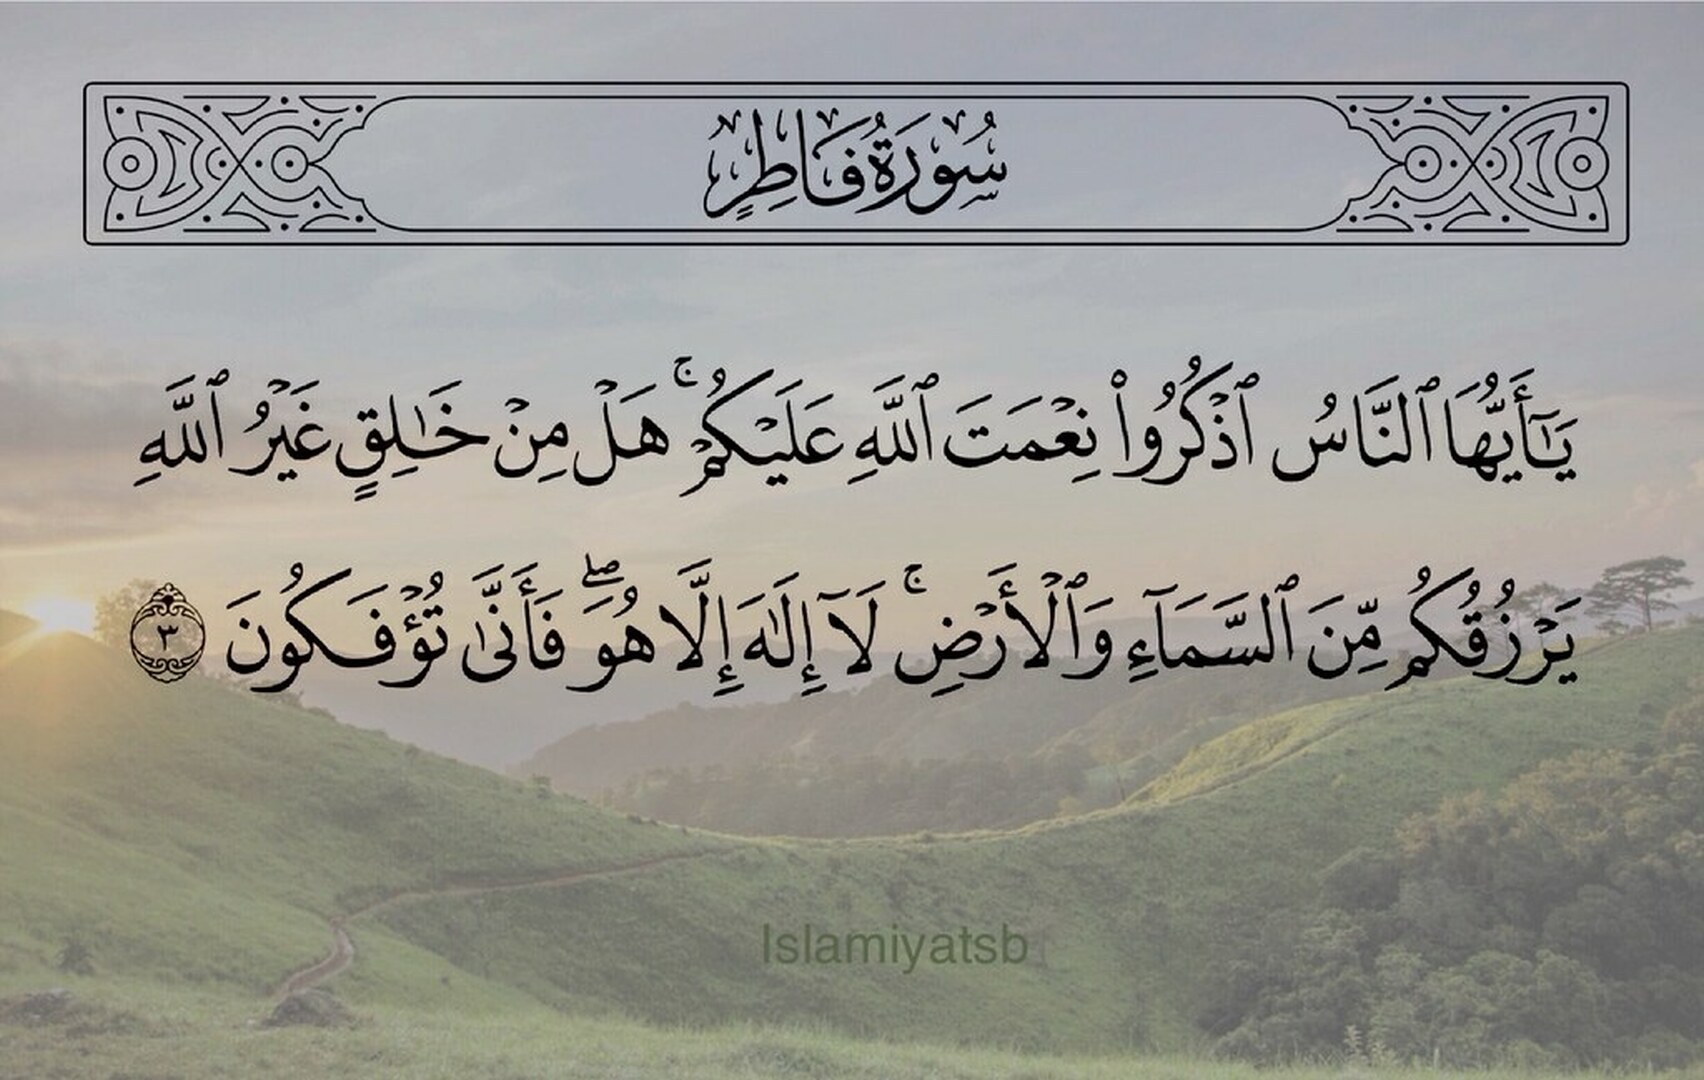 سُورَةُ فَاطِرٍ
يَٰٓأَيُّهَا ٱلنَّاسُ ٱذۡكُرُواْ نِعۡمَتَ ٱللَّهِ عَلَيۡكُمۡۚ هَلۡ مِنۡ خَٰلِقٍ غَيۡرُ ٱللَّهِ
يَرۡزُقُكُم مِّنَ ٱلسَّمَآءِ وَٱلۡأَرۡضِۚ لَآ إِلَٰهَ إِلَّا هُوَۖ فَأَنَّىٰ تُؤۡفَكُونَ ٣
Islamiyatsb